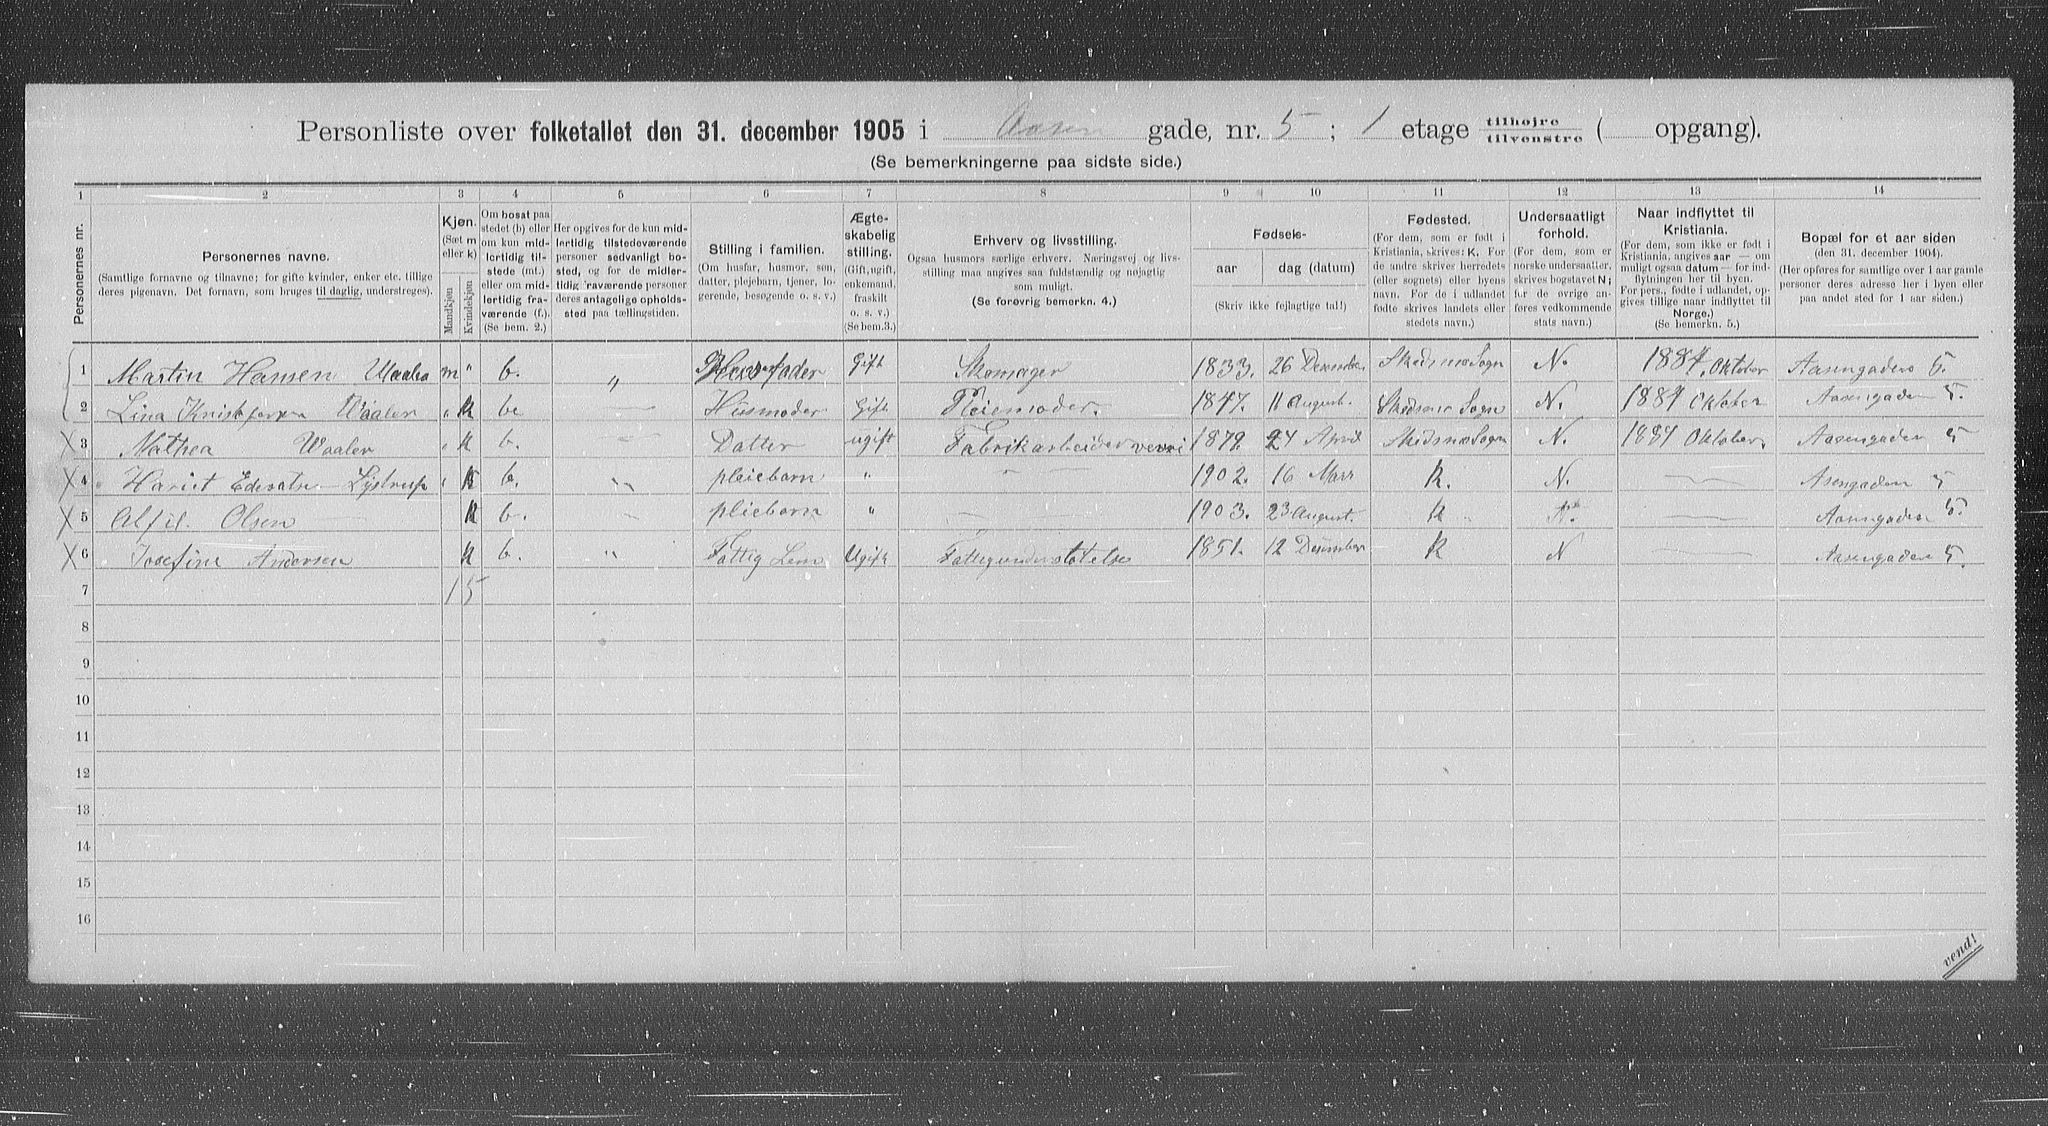 Personliste over folketallet den 31. december 1905 i Aasen gade, nr. 5; 1 etage tilhøjre tilvenstre ( opgang).
(Se bemerkningerne paa sidste side.)
1 2 3 4 5 6 7 8 9 10 11 12 13 14
Personernes nr.
Personernes navne.
(Samtlige fornavne og tilnavne; for gifte kvinder, enker etc. tillige deres pigenavn. Det fornavn, som bruges til daglig, understreges).
Kjøn.
(Sæt m eller k)
Mandkjøn
Kvindekjøn
Om bosat paa stedet (b) eller om kun midlertidig tilstede (mt.) eller om midlertidig fraværende (f.). (Se bem. 2.)
Her opgives for de kun midlertidig tilstedeværende personer sedvanligt bosted, og for de midlertidig fraværende personer deres antagelige opholdssted paa tællingstiden.
Stilling i familien.
(Om husfar, husmor, søn, datter, plejebarn, tjener, logerende, besøgende o. s. v.)
Ægteskabelig stilling.
(Gift, ugift, enkemand, fraskilt o. s. v.)
(Se bem.3.)
Erhverv og livsstilling.
Ogsaa husmors særlige erhverv. Næringsvej og livsstilling maa angives saa fuldstændig og nøjagtig som muligt.
(Se forøvrig bemerkn. 4.)
Fødsels-
aar
dag (datum)
(Skriv ikke fejlagtige tal!)
Fødested.
(For dem, som er født i Kristiania, skrives: K. For de andre skrives herredets (eller sognets) eller byens navn. For de i udlandet fødte skrives landets eller stedets navn.)
Undersaatligt forhold.
(For dem, som er norske undersaatter, skrives bogstavet N; for de øvrige anføres vedkommende stats navn.)
Naar indflyttet til Kristiania.
(For dem, som ikke er født i Kristiania, angives aar — om muligt ogsaa datum — for indflytningen her til byen. For pers., fødte i udlandet, opgives tillige naar indflyttet til Norge.)
(Se bemerkn. 5.)
Bopæl for et aar siden
(den 31. december 1904).
(Her opføres for samtlige over 1 aar gamle personer deres adresse her i byen eller paa andet sted for 1 aar siden.)
1 Martin Hansen Waaler m " b. " Husfader Gift Skomager 1833. 26 December Skedsmo Sogn N. 1884. Oktober Aasengaden 5.
2 Lina Kristofersen Waaler " k be — Husmoder Gift Pleiemoder. 1847. 11 August. Skedsmo Sogn N. 1884 Oktober Aasengaden 5.
X 3 Mathea Waaler " k b. — Datter ugift Fabrikarbeiderveveri 1879 24 April Skedsmo Sogn N. 1884 Oktober. Aasengaden 5
X 4 k b. " pleiebarn " " — 1902. 16 Mars K. N. — Asengaden 5
X 5 Olsen k b. — pleiebarn " — 1903. 23 August. K N. — Aasengaden 5.
X 6 Josefine Andersen k b. " Fattig Lem Ugift Fattigunderstøtelse 1851. 12 December K N — Aasengaden 5.
7 1 5
8
9
10
11
12
13
14
15
16
vend!